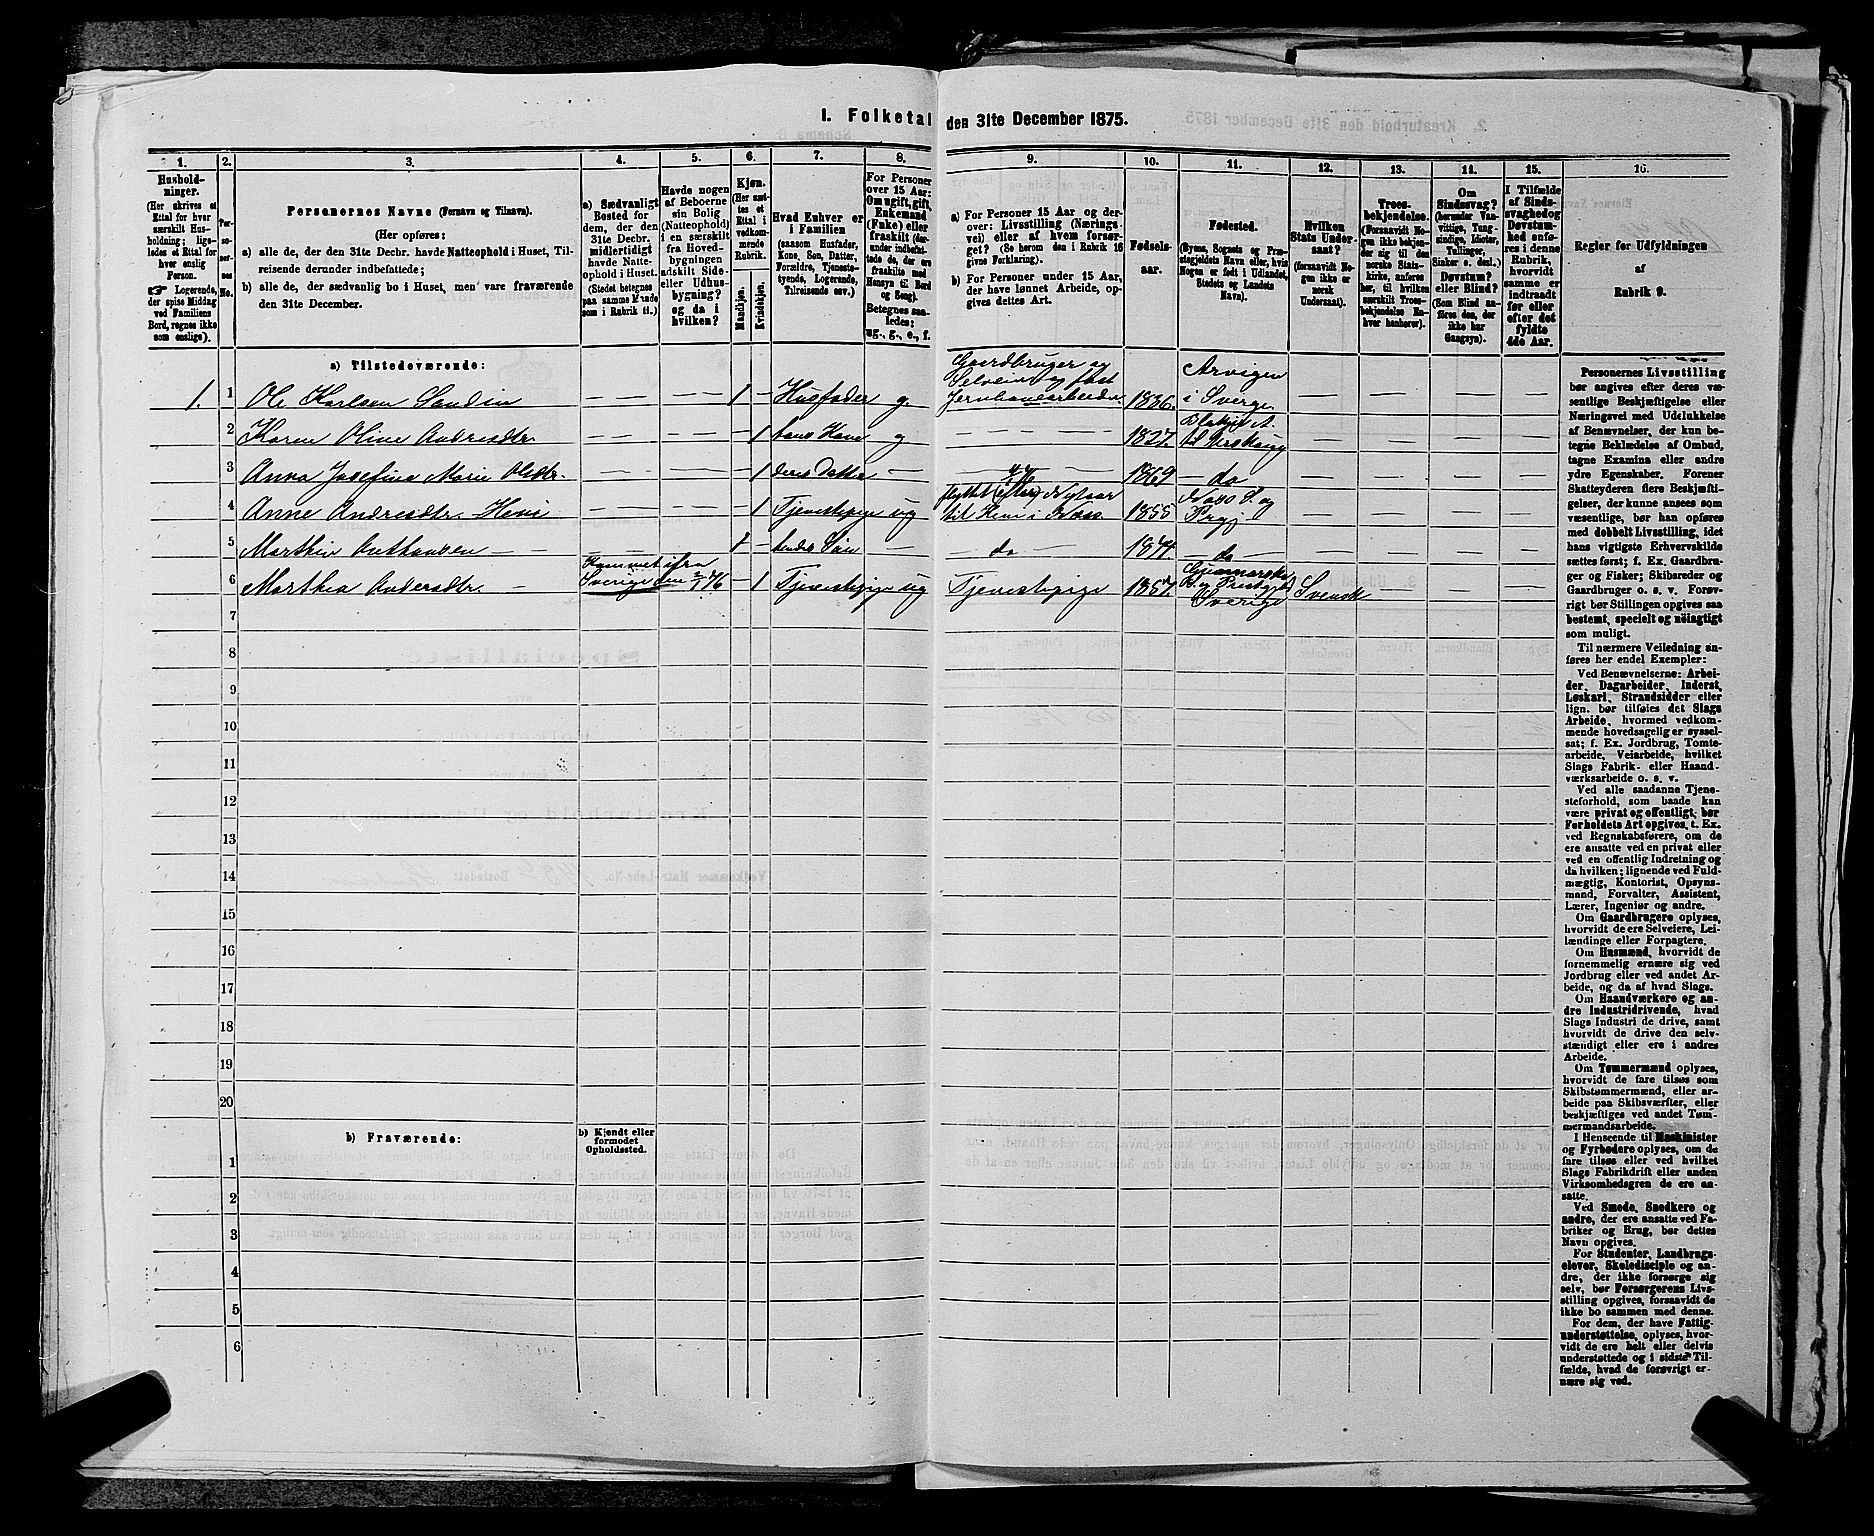 1. Folketal den 31te December 1875.
1. 2. 3. 4. 5. 6. 7. 8. 9. 10. 11. 12. 13. 14. 15. 16.
Hushold-
ninger.
(Her skrives et
Ettal for hver
særskilt Hus-
holdning; lige-
ledes et Ettal for
hver enslig
Person.
☞ Logerende,
der spise Middag
ved Familiens
Bord, regnes ikke
som enslige).
Per-
so-
ner-
nes
No.
Personernes Navne (Fornavn og Tilnavn).
(Her opføres:
a) alle de, der den 31te Decbr. havde Natteophold i Huset, Til-
reisende derunder indbefattede;
b) alle de, der sædvanlig bo i Huset, men vare fraværende
den 31te December.
a) Sædvanligt
Bosted for
dem, der den
31te Decbr.
midlertidigt
havde Natte-
ophold i Huset.
(Stedet betegnes
paa samme Maade
som i Rubrik 11.)
Havde nogen
af Beboerne
sin Bolig
(Natteophold)
i en særskilt
fra Hoved-
bygningen
adskilt Side-
eller Udhus-
bygning?
og da i
hvilken?
Kjøn.
(Her sæt-
tes et
Ettal i
vedkom-
mende
Rubrik.
Mandkjøn.
Kvindekjøn.
Hvad Enhver er
i Familien
(saasom Husfader,
Kone, Søn, Datter,
Forældre, Tjeneste-
tyende, Logerende,
Tilreisende osv.)
For Personer
over 15 Aar:
Om ugift, gift,
Enkemand
(Enke) eller
fraskilt (der-
under indbefat-
tede de, der ere
fraskilte med
Hensyn til Bord
og Seng).
Betegnes saa-
ledes:
ug., g., e., f.
a) For Personer 15 Aar og der-
over: Livsstilling (Nærings-
vei) eller af hvem forsør-
get? (Se herom den i Rubrik 16
givne Forklaring).
b) For Personer under 15 Aar,
der have lønnet Arbeide, op-
gives dettes Art.
Fødsels-
aar.
Fødested.
(Byens, Sognets og Præ-
stegjeldets Navn eller, hvis
Nogen er født i Udlandet,
Stedets og Landets
Navn).
Hvilken
Stats Under-
saat?
(forsaavidt No-
gen ikke er
norsk
Undersaat).
Troes-
bekjendelse.
(Forsaavidt No-
gen ikke bekjen-
der sig til den
norske Stats-
kirke, anføres
her, til hvilken
særskilt Troes-
bekjendelse En-
hver henhører).
Om
Sindssvag?
(herunder Van-
vittige, Tung-
sindige, Idioter,
Tullinger,
Sinker o. desl.)
Døvstum?
eller Blind?
(Som Blind an-
føres den, der
ikke har
Gangsyn).
I Tilfælde
af Sinds-
svaghed og
Døvstum-
hed anfø-
res i denne
Rubrik,
hvorvidt
samme er
indtraadt
før eller
efter det
fyldte
4de Aar.
Regler for Udfyldningen
af
Rubrik 9.
a) Tilstedeværende:
1. 1 Ole Karlsen Sandvin — — 1 — Husfader g. Gaardbruger og Selveier og fast Jernbanearbeider 1836. Arvigen i Sverge. — — — —
2 Karen Oline Andresdtr. — — — 1 hans Kone g — — — 1827. — — — —
3 Anna Josefine Marie Olsdtr. — — — 1 deres Datter — 1869 — do — — — —
4 Anne Andresdtr. — — — 1 Tjenestepige ug 1855 — — — —
5 Marthin — — — 1 — hendes Søn — — do — 1874 — do — — — —
6 Marthea Andersdtr. — Kommet ifra Sverige — 1 Tjenestepige ug Tjenestepige 1857. Sverige Svensk — — —
7
8
9
10
11
12
13
14
15
16
17
18
19
20
b) Fraværende:
b) Kjendt eller
formodet
Opholdssted.
1
2
3
4
5
6
Personernes Livsstilling
bør angives efter deres væ-
sentlige Beskjæftigelse eller
Næringsvei med Udelukkelse
af Benævnelser, der kun be-
tegne Beklædelse af Ombud,
tagne Examina eller andre
ydre Egenskaber. Forener
Skatteyderen flere Beskjæfti-
gelser, der kunne ansees som
væsentlige, bør han opføres
med dobbelt Livsstilling, idet
hans vigtigste Erhvervskilde
sættes først; f. Ex. Gaardbru-
ger og Fisker; Skibsreder og
Gaardbruger o. s. v. Forøv-
rigt bør Stillingen opgives saa
bestemt, specielt og nøiagtigt
som muligt.
Til nærmere Veiledning an-
føres her endel Exempler:
Ved Benævnelserne: Arbei-
der, Dagarbeider, Inderst,
Løskarl, Strandsidder eller
lign. bør tilføies det Slags
Arbeide, hvormed vedkom-
mende hovedsagelig er syssel-
sat; f. Ex. Jordbrug, Tomte-
arbeide, Veiarbeide, hvilket
Slags Fabrik- eller Haand-
værksarbeide o. s. v.
Ved alle saadanne Tjene-
steforhold, som baade kan
være privat og offentligt, bør
Forholdets Art opgives, t. Ex.
ved Regnskabsførere, om de
ere ansatte ved en privat eller
ved en offentlig Indretning og
da hvilken; lignende ved Fuld-
mægtig, Kontorist, Opsyns-
mand, Forvalter, Assistent,
Lærer, Ingeniør og andre.
Om Gaardbrugere oplyses,
hvorvidt de ere Selveiere, Lei-
lændinge eller Forpagtere.
Om Husmænd, hvorvidt de
fornemmelig ernære sig ved
Jordbrug eller ved andet Ar-
beide, og da af hvad Slags.
Om Haandværkere og an-
dre Industridrivende, hvad
Slags Industri de drive, samt
hvorvidt de drive den selv-
stændigt eller ere i andres
Arbeide.
Om Tømmermænd oplyses,
hvorvidt de fare tilsøs som
Skibstømmermænd, eller ar-
beide paa Skibsværfter, eller
beskjæftiges ved andet Tøm-
mermandsarbeide.
I Henseende til Maskinister
og Fyrbødere oplyses, om de
fare tilsøs eller ved hvilket
Slags Fabrikdrift eller anden
Virksomhedsgren de ere an-
satte.
Ved Smede, Snedkere og
andre, der ere ansatte ved Fa-
briker og Brug, bør dettes
Navn opgives.
For Studenter, Landbrugs-
elever, Skoledisciple og an-
dre, der ikke forsørge sig
selv, bør Forsørgerens Livs-
stilling opgives, forsaavidt de
ikke bo sammen med denne.
For dem, der have Fattig-
understøttelse, oplyses, hvor-
vidt de ere helt eller delvis
understøttede og i sidste Til-
fælde, hvad de forøvrigt er-
nære sig ved.